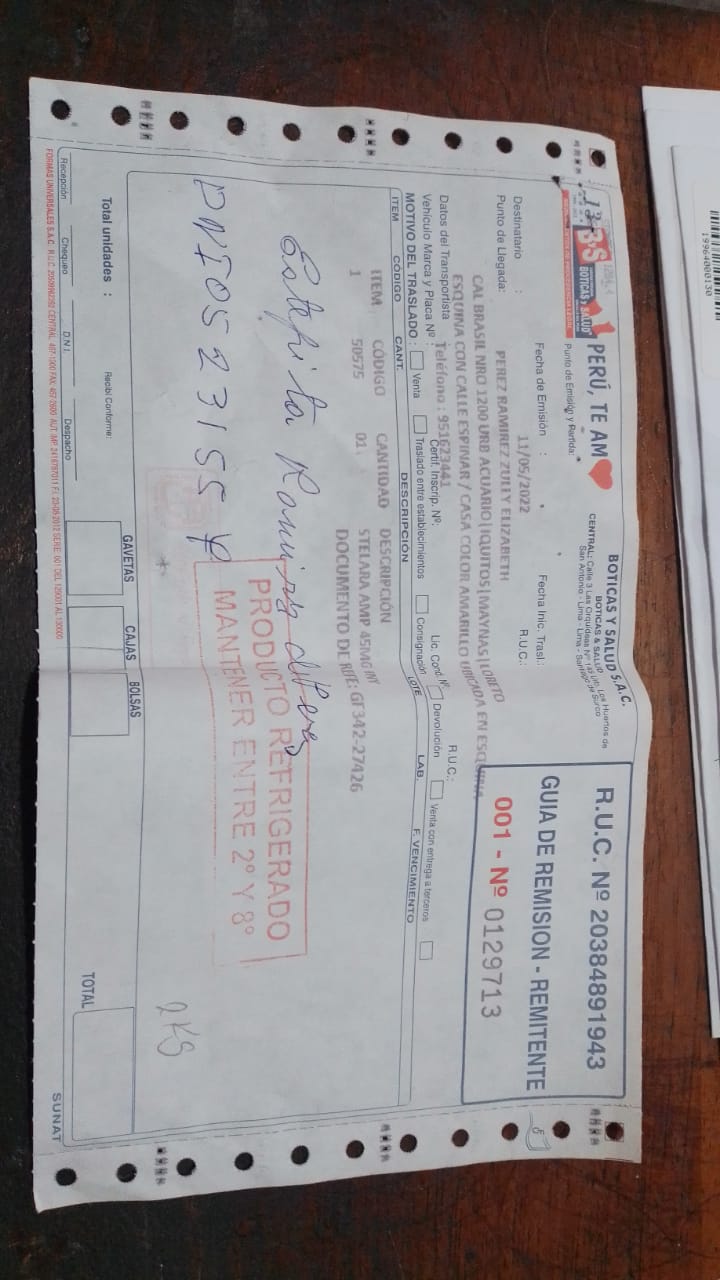 PERÚ, TE AM
B's
BOTICAS Y SALUD
Punto de Emisión y Partida:
BOTICAS Y SALUD S.A.C.
BOTICAS & SALUD
CENTRAL: Calle 3 Las Orquídeas Nº
San Antonio - Lima - Lima - Santiago de Surco
R.U.C. Nº 20384891943
GUIA DE REMISION - REMITENTE
001 - Nº 0129713
Fecha de Emisión :
11/05/2022
Fecha Inic. Trasl.:
Destinatario :
PEREZ RAMIREZ ZULLY ELIZABETH
R.U.C.:
Punto de Llegada:
CAL BRASIL NRO 1200 URB ACUARIO | IQUITOS | MAYNAS | LORETO
ESQUINA CON CALLE ESPINAR / CASA COLOR AMARILLO UBICADA EN ESQUINA
Datos del Transportista
Teléfono : 951623441
R.U.C.:
Vehículo Marca y Placa Nº :
Certif. Inscrip. Nº:
Lic. Cond. Nº
MOTIVO DEL TRASLADO : Venta Traslado entre establecimientos Consignación Devolución Venta con entrega a terceros
ITEM CÓDIGO CANT. DESCRIPCIÓN LOTE LAB. F. VENCIMIENTO
ITEM CÓDIGO CANTIDAD DESCRIPCIÓN
1 50575 01 STELARA AMP 45MG INY
DOCUMENTO DE RFTE: GT342-27426
Ramirez
DNI 0523155
PRODUCTO REFRIGERADO
MANTENER ENTRE 2° Y 8°
2KS
GAVETAS CAJAS BOLSAS TOTAL
Total unidades :
Recibí Conforme:
Recepción Chequeo D.N.I. Despacho
SUNAT